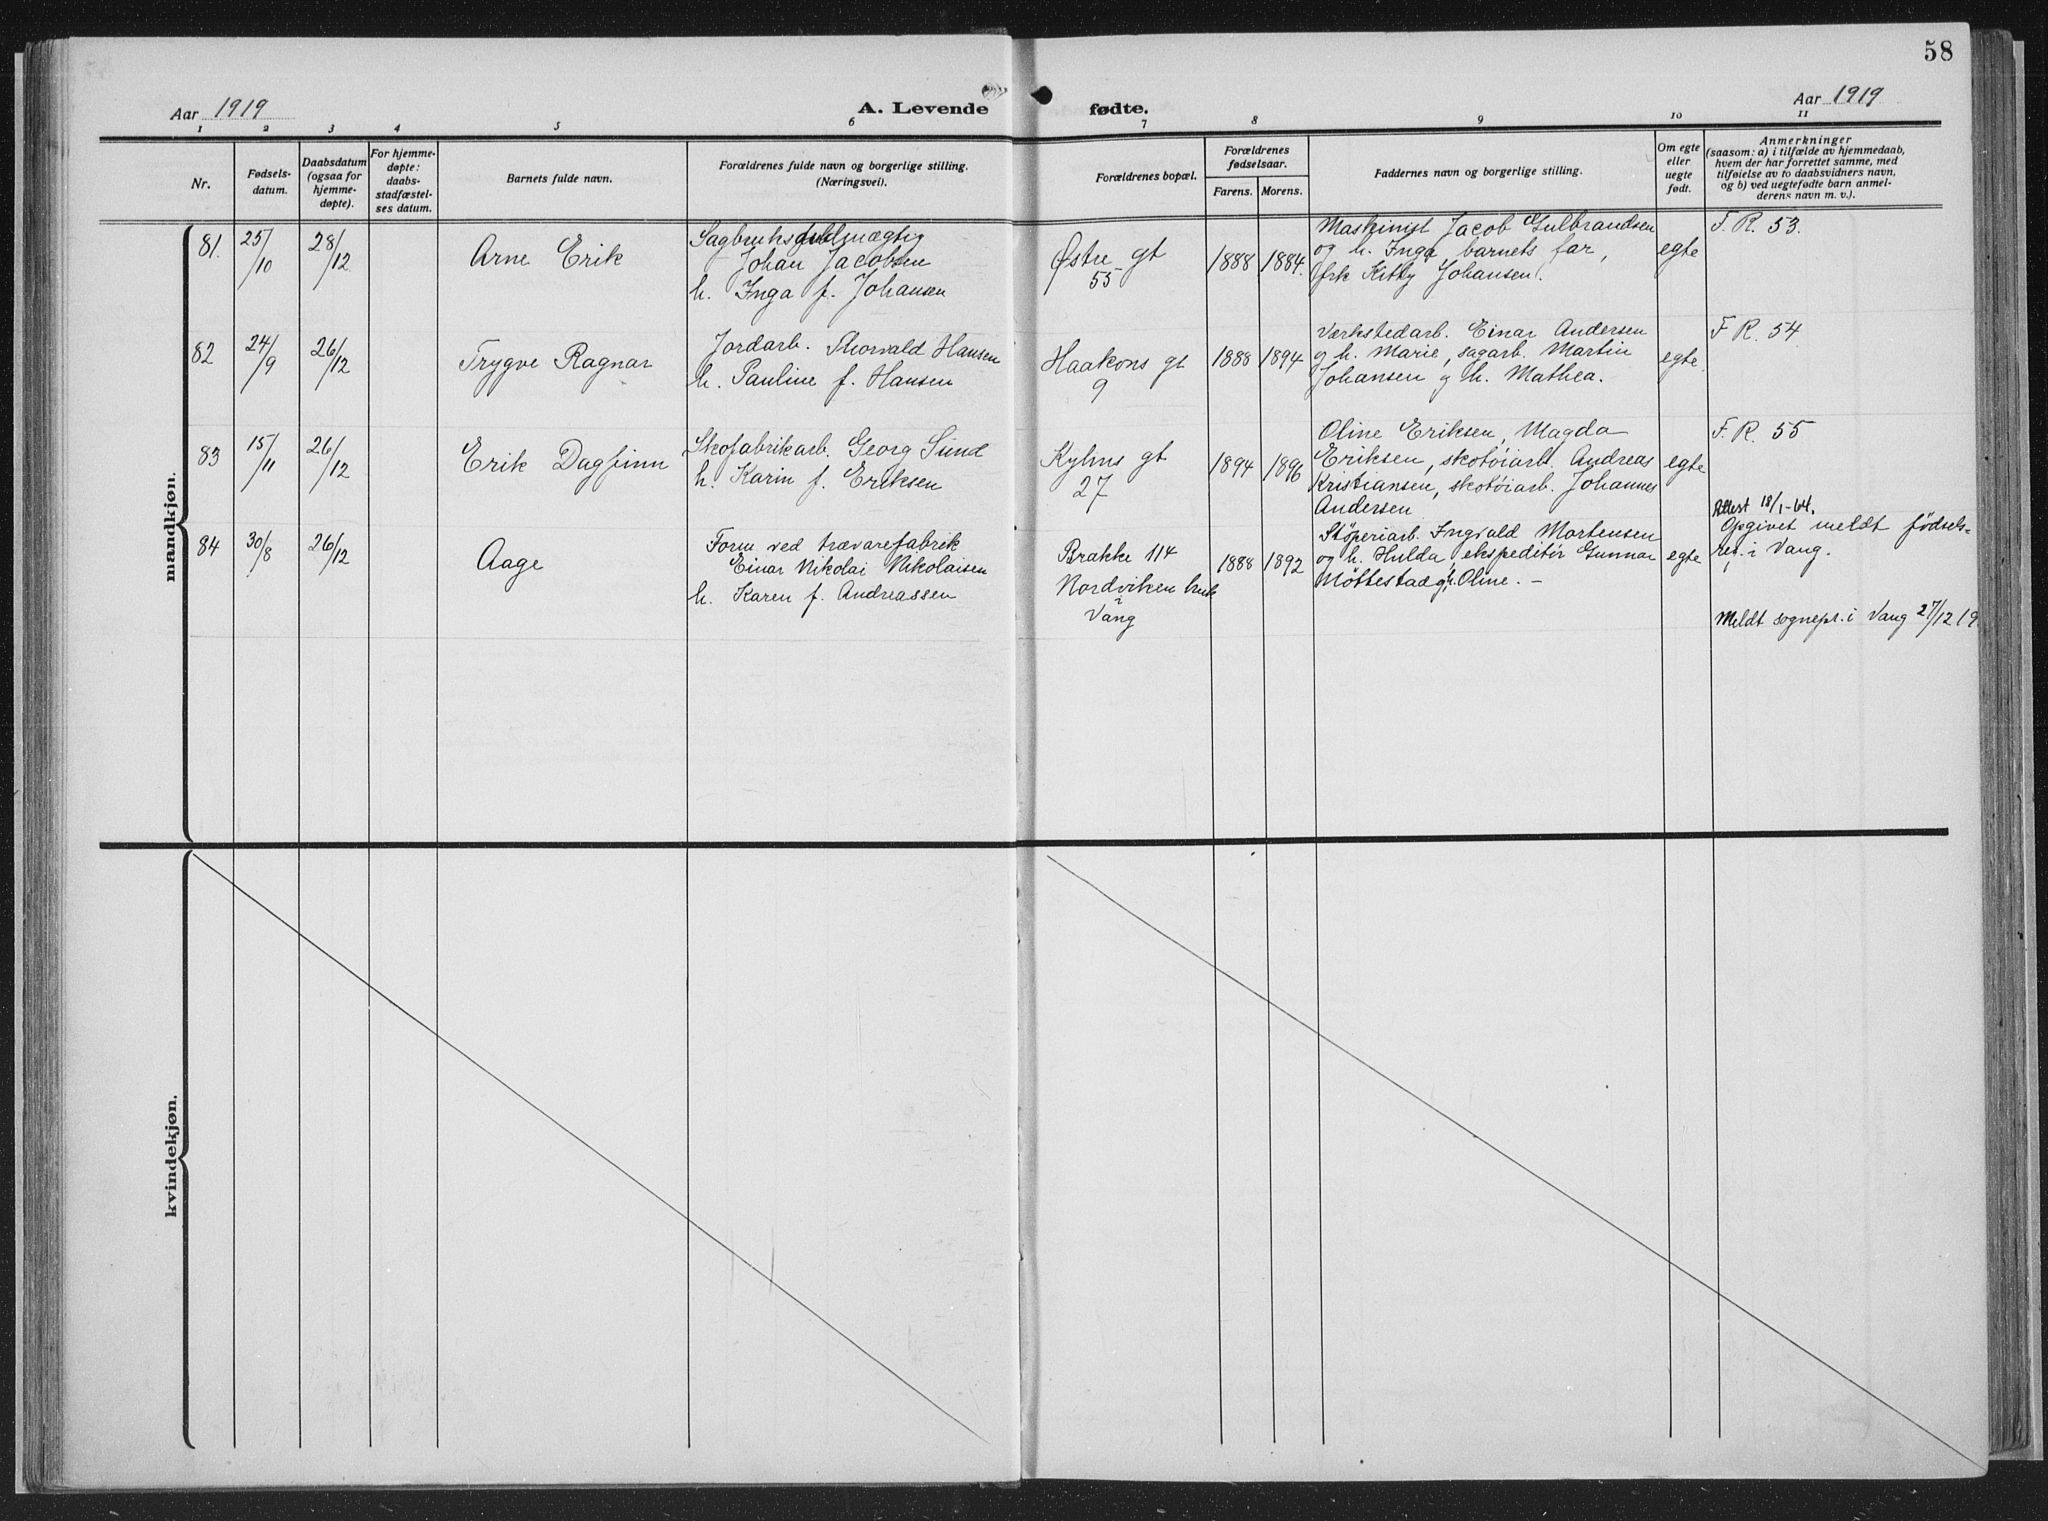 58
Aar 1919
A. Levende
fødte.
Aar 1919
1 2 3 4 5 6 7 8 9 10 11
Nr.
Fødsels-
datum.
Daabsdatum
(ogsaa for
hjemme-
døpte).
For hjemme-
døpte:
daabs-
stadfæstel-
ses datum.
Barnets fulde navn.
Forældrenes fulde navn og borgerlige stilling.
(Næringsvei).
Forældrenes bopæl.
Forældrenes
fødselsaar.
Farens. Morens.
Faddernes navn og borgerlige stilling.
Om egte
eller
uegte
født.
Anmerkninger
(saasom: a) i tilfælde av hjemmedaab,
hvem der har forrettet samme, med
tilføielse av to daabsvidners navn,
og b) ved uegtefødte barn anmel-
derens navn m. v.).
mandkjøn.
81. 25/10 28/12 Arne Erik
Sagbruksfuldmægtig
Johan Jacobsen
h. Inga f. Johansen
Østre gt
55
1888 1884.
Maskinist Jacob Gulbrandsen
og h. Inga, barnets far,
frk Kitty Johansen.
egte
F. R. 53.
82 24/9 26/12 Trygve Ragnar
Jordarb. Thorvald Hansen
h. Pauline f. Hansen
Haakons gt
9
1888 1894
Værkstedarb. Einar Andersen
og h. Marie, sagarb. Martin
Johansen og h. Mathea.
egte.
F. R. 54
83 15/11 26/12 Erik Dagfinn
Skofabrikarb. Georg Sund
h. Karin f. Eriksen
Kylms gt
27
1894 1896
Oline Eriksen, Magda
Eriksen, skotøiarb. Andreas
Kristiansen, skotøiarb. Johannes
Andersen
egte
F. R. 55
84 30/8 26/12 Aage
Form. ved trævarefabrik
Einar Nikolai Nikolaisen
h. Karen f. Andreassen
Brakke 114
Nordviken bruk
i
Vang
1888 1892
Støperiarb. Ingvald Mortensen
og h. Hulda, ekspeditør Gunnar
Møttestad og h. Oline. —
egte
Attest 18/1-64.
Opgivet meldt fødsels-
reg. i Vang.
Meldt sognepr. i Vang 27/12 19
kvindekjøn.